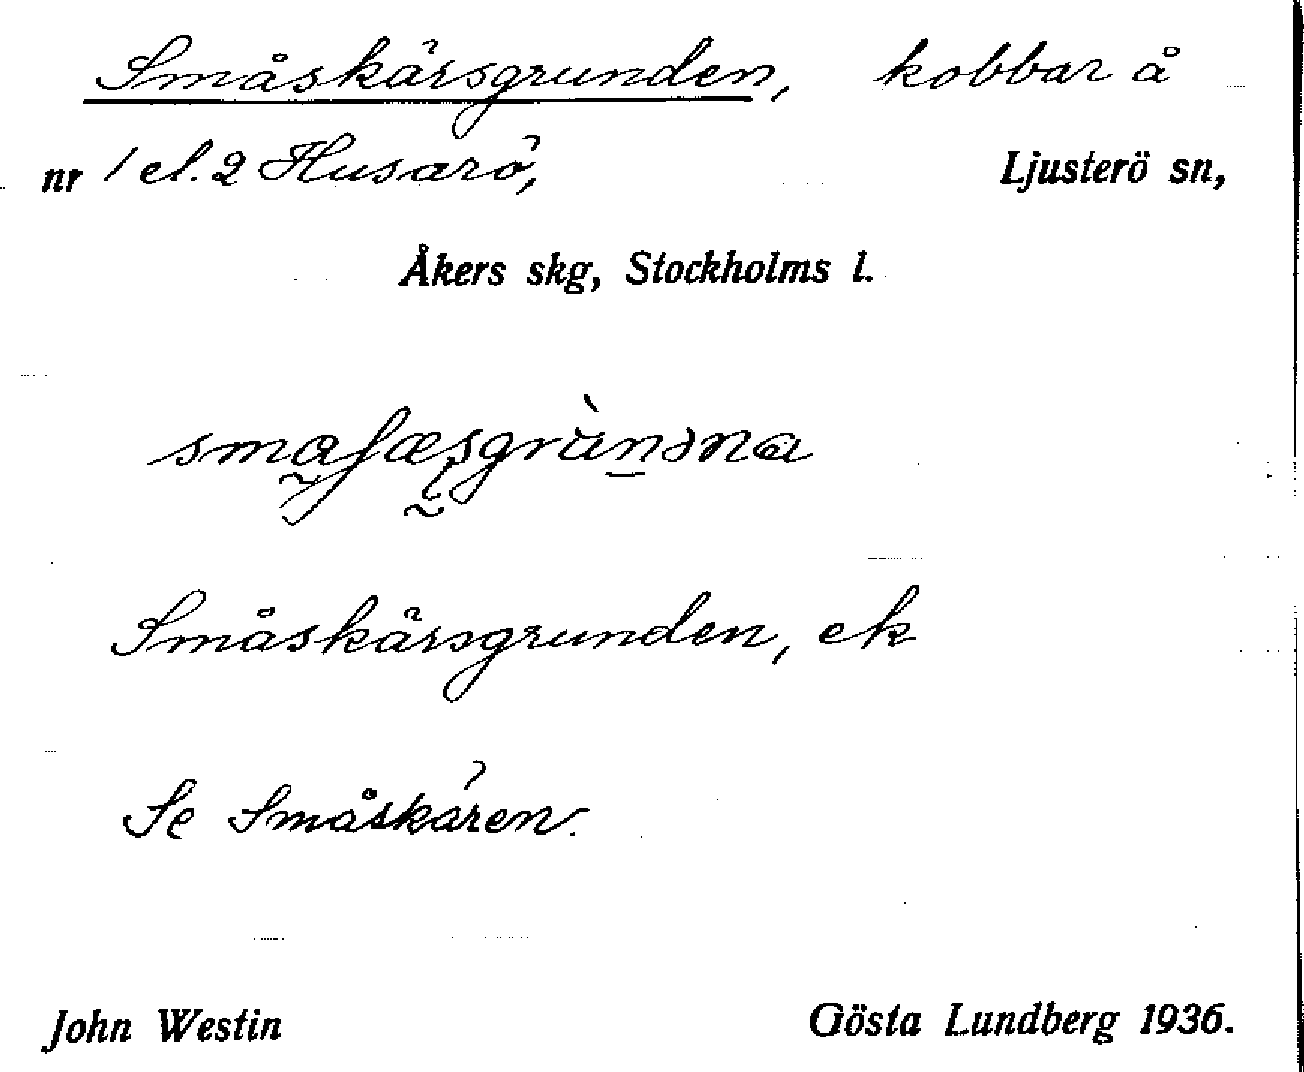 Småskärsgrunden, kobbar å
nr 1 el. 2 Husarö, Ljusterö sn,
Åkers skg, Stockholms l.
Småskärsgrunden, ek
Se Småskären.
John Westin Gösta Lundberg 1936.